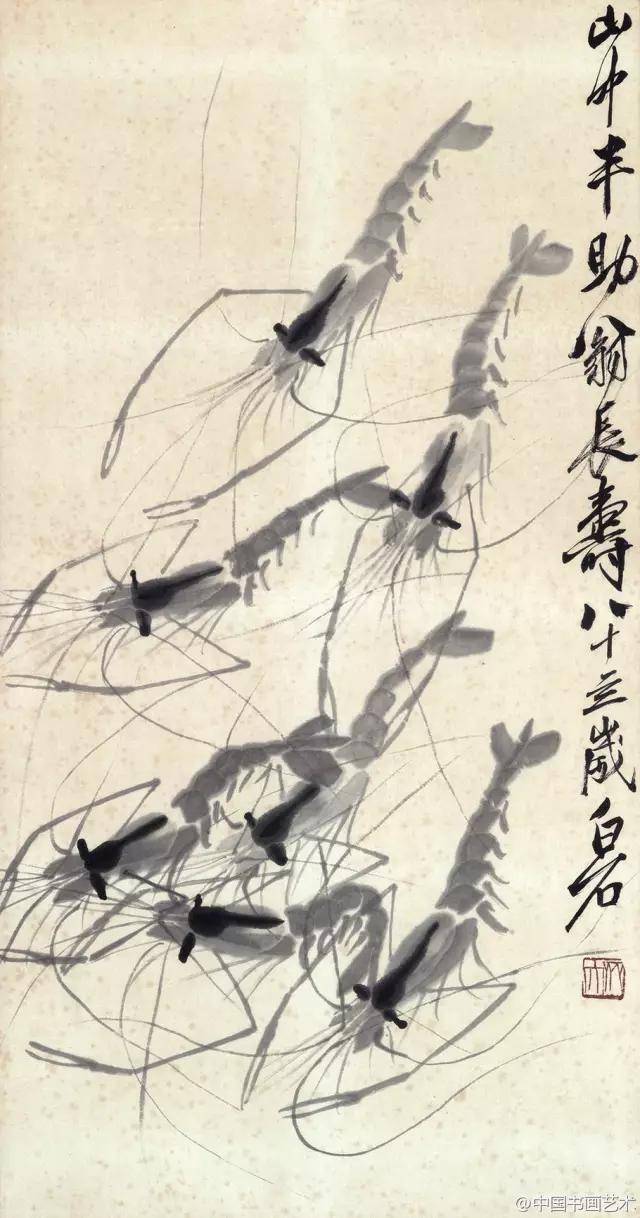 山中半助翁長壽八十三歲白石
@中国书画艺术